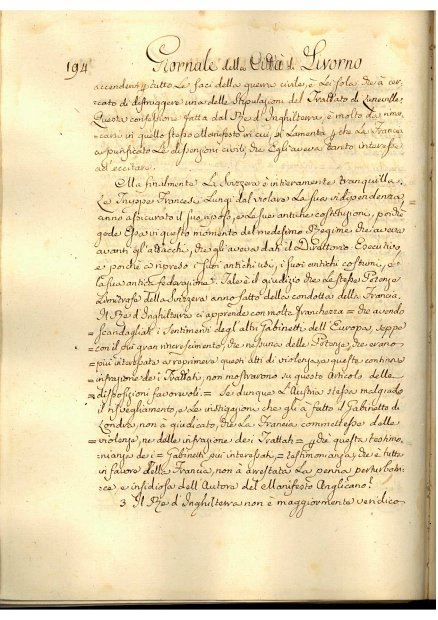 194 Giornale della Città di Livorno
accendere tutto Le faci della guerra civile, è Lei sola che à cer-
cato di distruggere una delle Stipulazioni del Trattato di Luneville.
Questa confessione fatta dal Re d'Inghilterra, è molto da
carsi in quello stesso Manifesto in cui, si Lamenta che La Francia
à purificato Le dissensioni civili, che Egli aveva tanto interesse
ad eccitare.
Ma finalmente La Svizzera è intieramente tranquilla.
Le Truppe Francesi Lungi dal violare La sua indipendenza
anno assicurato il suo riposo, e Le sue antiche costituzioni, poichè
gode Essa in questo momento del medesimo Regime che aveva
avanti gli attacchi, che gli aveva dati il Direttorio Esecutivo,
e poichè à ripreso i suoi antichi usi, i suoi antichi costumi, e
La sua antica federazione. Tale è il giudizio che Le stesse Potenze
Limitrofe della Svizzera anno fatto della condotta della Francia.
Il Re d'Inghilterra ci apprende con molta franchezza = che avendo
= scandagliati i sentimenti degli altri Gabinetti dell'Europa, seppe
= con il più gran rincrescimento, che nessuna delle Potenze, che erano
= più interessate a reprimere questi atti di violenza, e queste continue
= infrazioni de i Trattati, non mostravano su questo Articolo delle
= disposizioni favorevoli. = Se dunque L'Austria stessa malgrado
il svegliamento, e Le instigazioni che gli à fatto il Gabinetto di
Londra, non à giudicato, che La Francia commettesse delle
= violenze, ne delle infrazione dei Trattati = che questa testimo-
nianza de i = Gabinetti più interessati, = testimonianza, che è tutta
in favore della Francia, non à arrestata La penna perturbatri-
ce, e insidiosa dell'Autore del Manifesto Anglicano?
3. Il Re d'Inghilterra non è maggiormente veridico